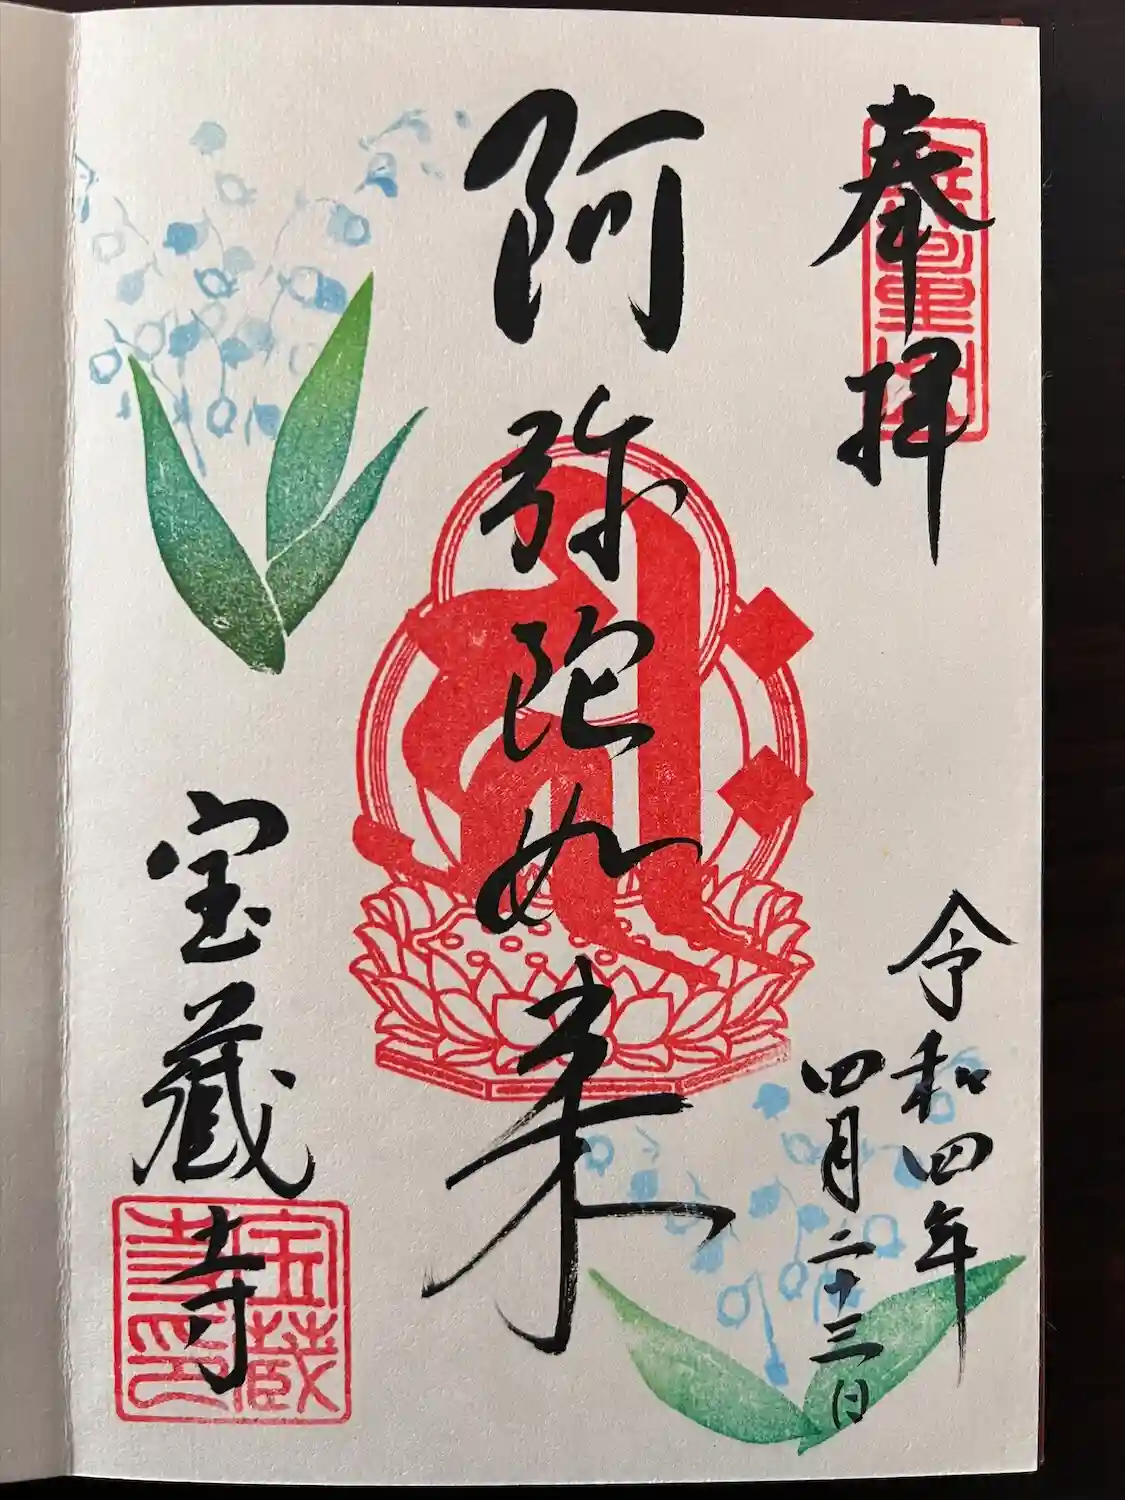 奉拝
令和四年
四月二十三日
阿弥陀如来
宝蔵寺
宝蔵
寺印